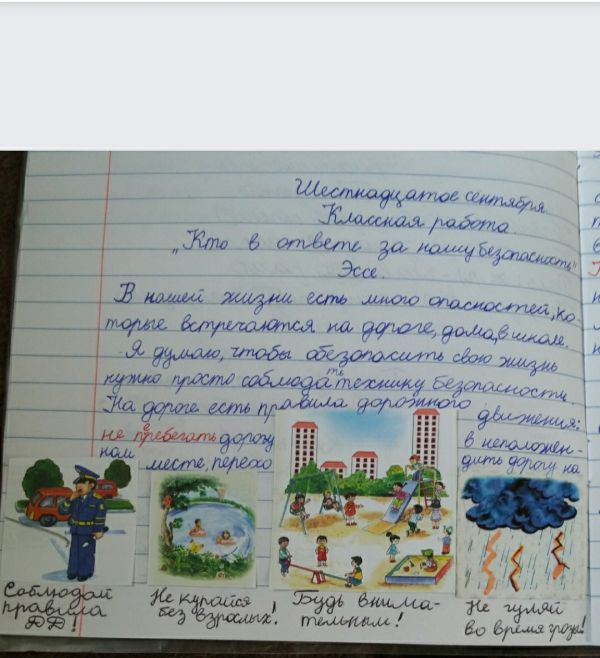 Шестнадцатое сентября.
Классная работа.
„Кто в ответе за нашу безопасность"
Эссе.
В нашей жизни есть много опасностей, ко-
торые встречаются на дороге, дома, в школе.
Я думаю, чтобы обезопасить свою жизнь
нужно просто соблюдать технику безопасности.
На дороге есть правила дорожного движения:
не перебегать дорогу в неположен-
ном месте, перехо дить дорогу на
Соблюдай
правила
ДД!
Не купайся
без взрослых!
Будь внима-
тельным!
Не гуляй
во время грозы!